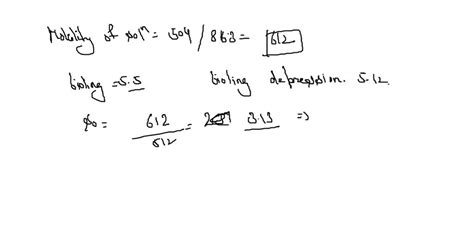 Molality of solⁿ = 504 / 863 = 612
boiling = 5.5 boiling depression. 5.12
So = 612 / 512 = 3.13 =>